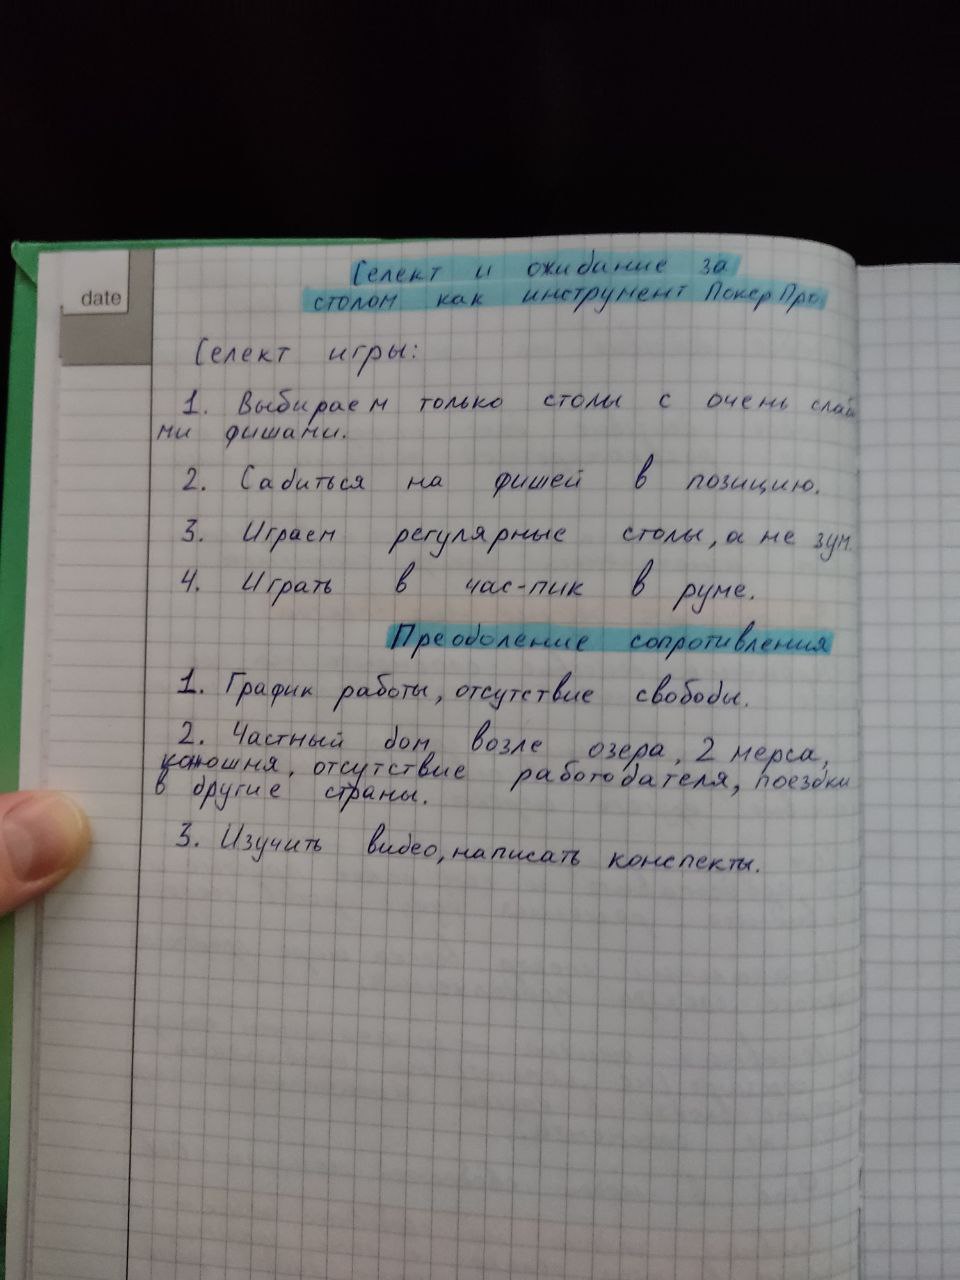 date
Селект и ожидание за
столом как инструмент Покер Про.
Селект игры:
1. Выбираем только столы с очень слабы
ми фишами.
2. Садиться на фишей в позицию.
3. Играем регулярные столы, а не зум.
4. Играть в час-пик в руме.
Преодоление сопротивления
1. График работы, отсутствие свободы.
2. Частный дом возле озера, 2 мерса,
конюшня, отсутствие работодателя, поездки
в другие страны.
3. Изучить видео, написать конспекты.